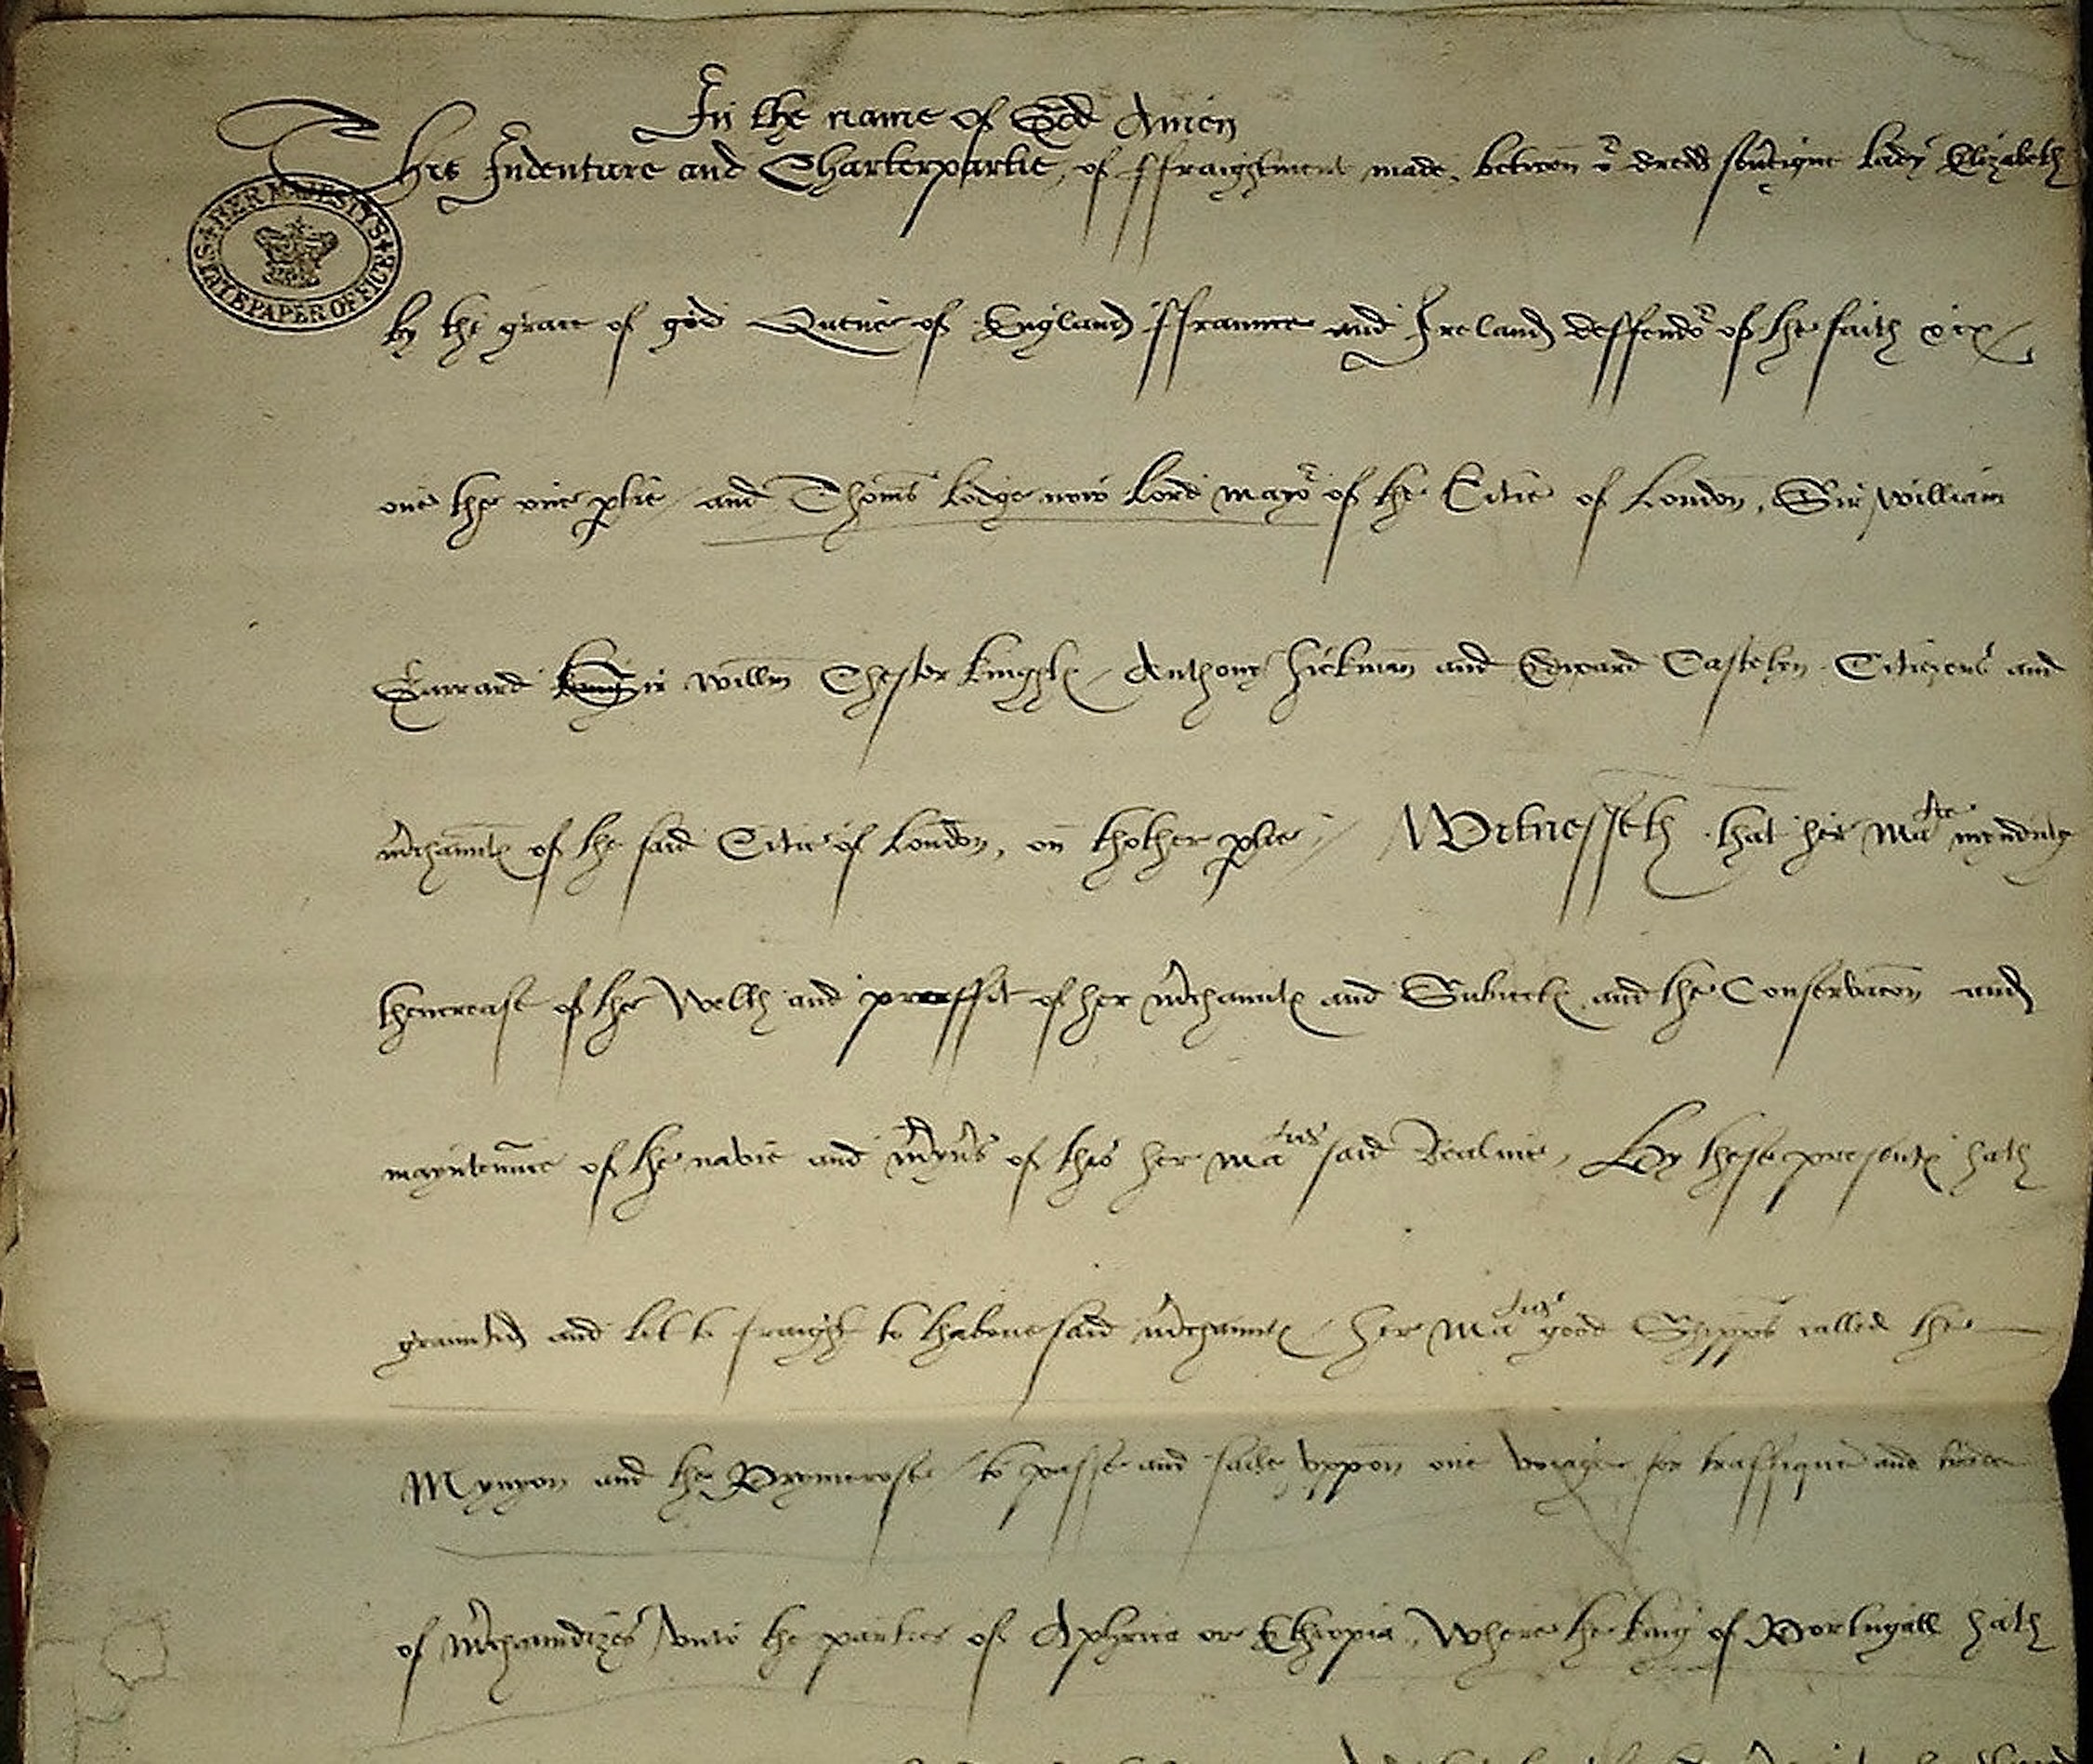 In the name of God Amen
This Indenture and Charterpartie, of ffraightment made, betwen or dredd sou'eigne Lady Elizabeth
HER MAJESTY'S STATE PAPER OFFICE
by the grace of god Quene of England ffraunce and Ireland deffendor of the faith
one the one p'tie and Thoms Lodge now Lord mayor of the Citie of London, Sir William
Garrard Sir Willm Chester knights Anthony Hickman and Edward Castelyn Citizens and
m'chaunts of the said Citie of London, on thother p'tie Witnesseth that her Matie myndinge
thencrease of the Welth and proffit of her m'chaunts and Subiects and the Conservacon and
mayntennce of the navie and m'yn's of this her Maties said Realme, By these presents hath
graunted and let to fraight to thabouesaid m'chaunts her Maties good Shipps called the
Mynyon and the Prymerose to passe and saile vppon one voiage for traffique and
of m'chaundizes vnto the parties of Aphrica or Ethiopia, Where the king of Portugall hath